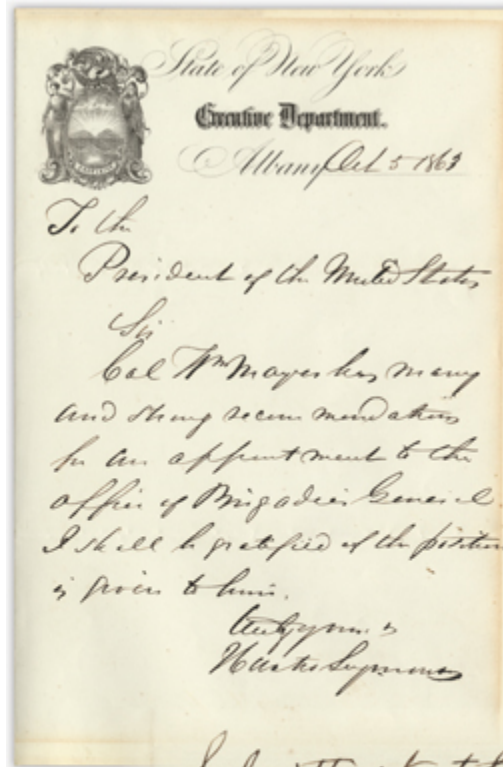 State of New York
Executive Department.
Albany Oct 5 1863
To the
President of the United States
Sir
Col Wm Mayer has many
and strong recommendations
for an appointment to the
office of Brigadier General
I shall be gratified if the position
is given to him.
Truly yours
Horatio Seymour